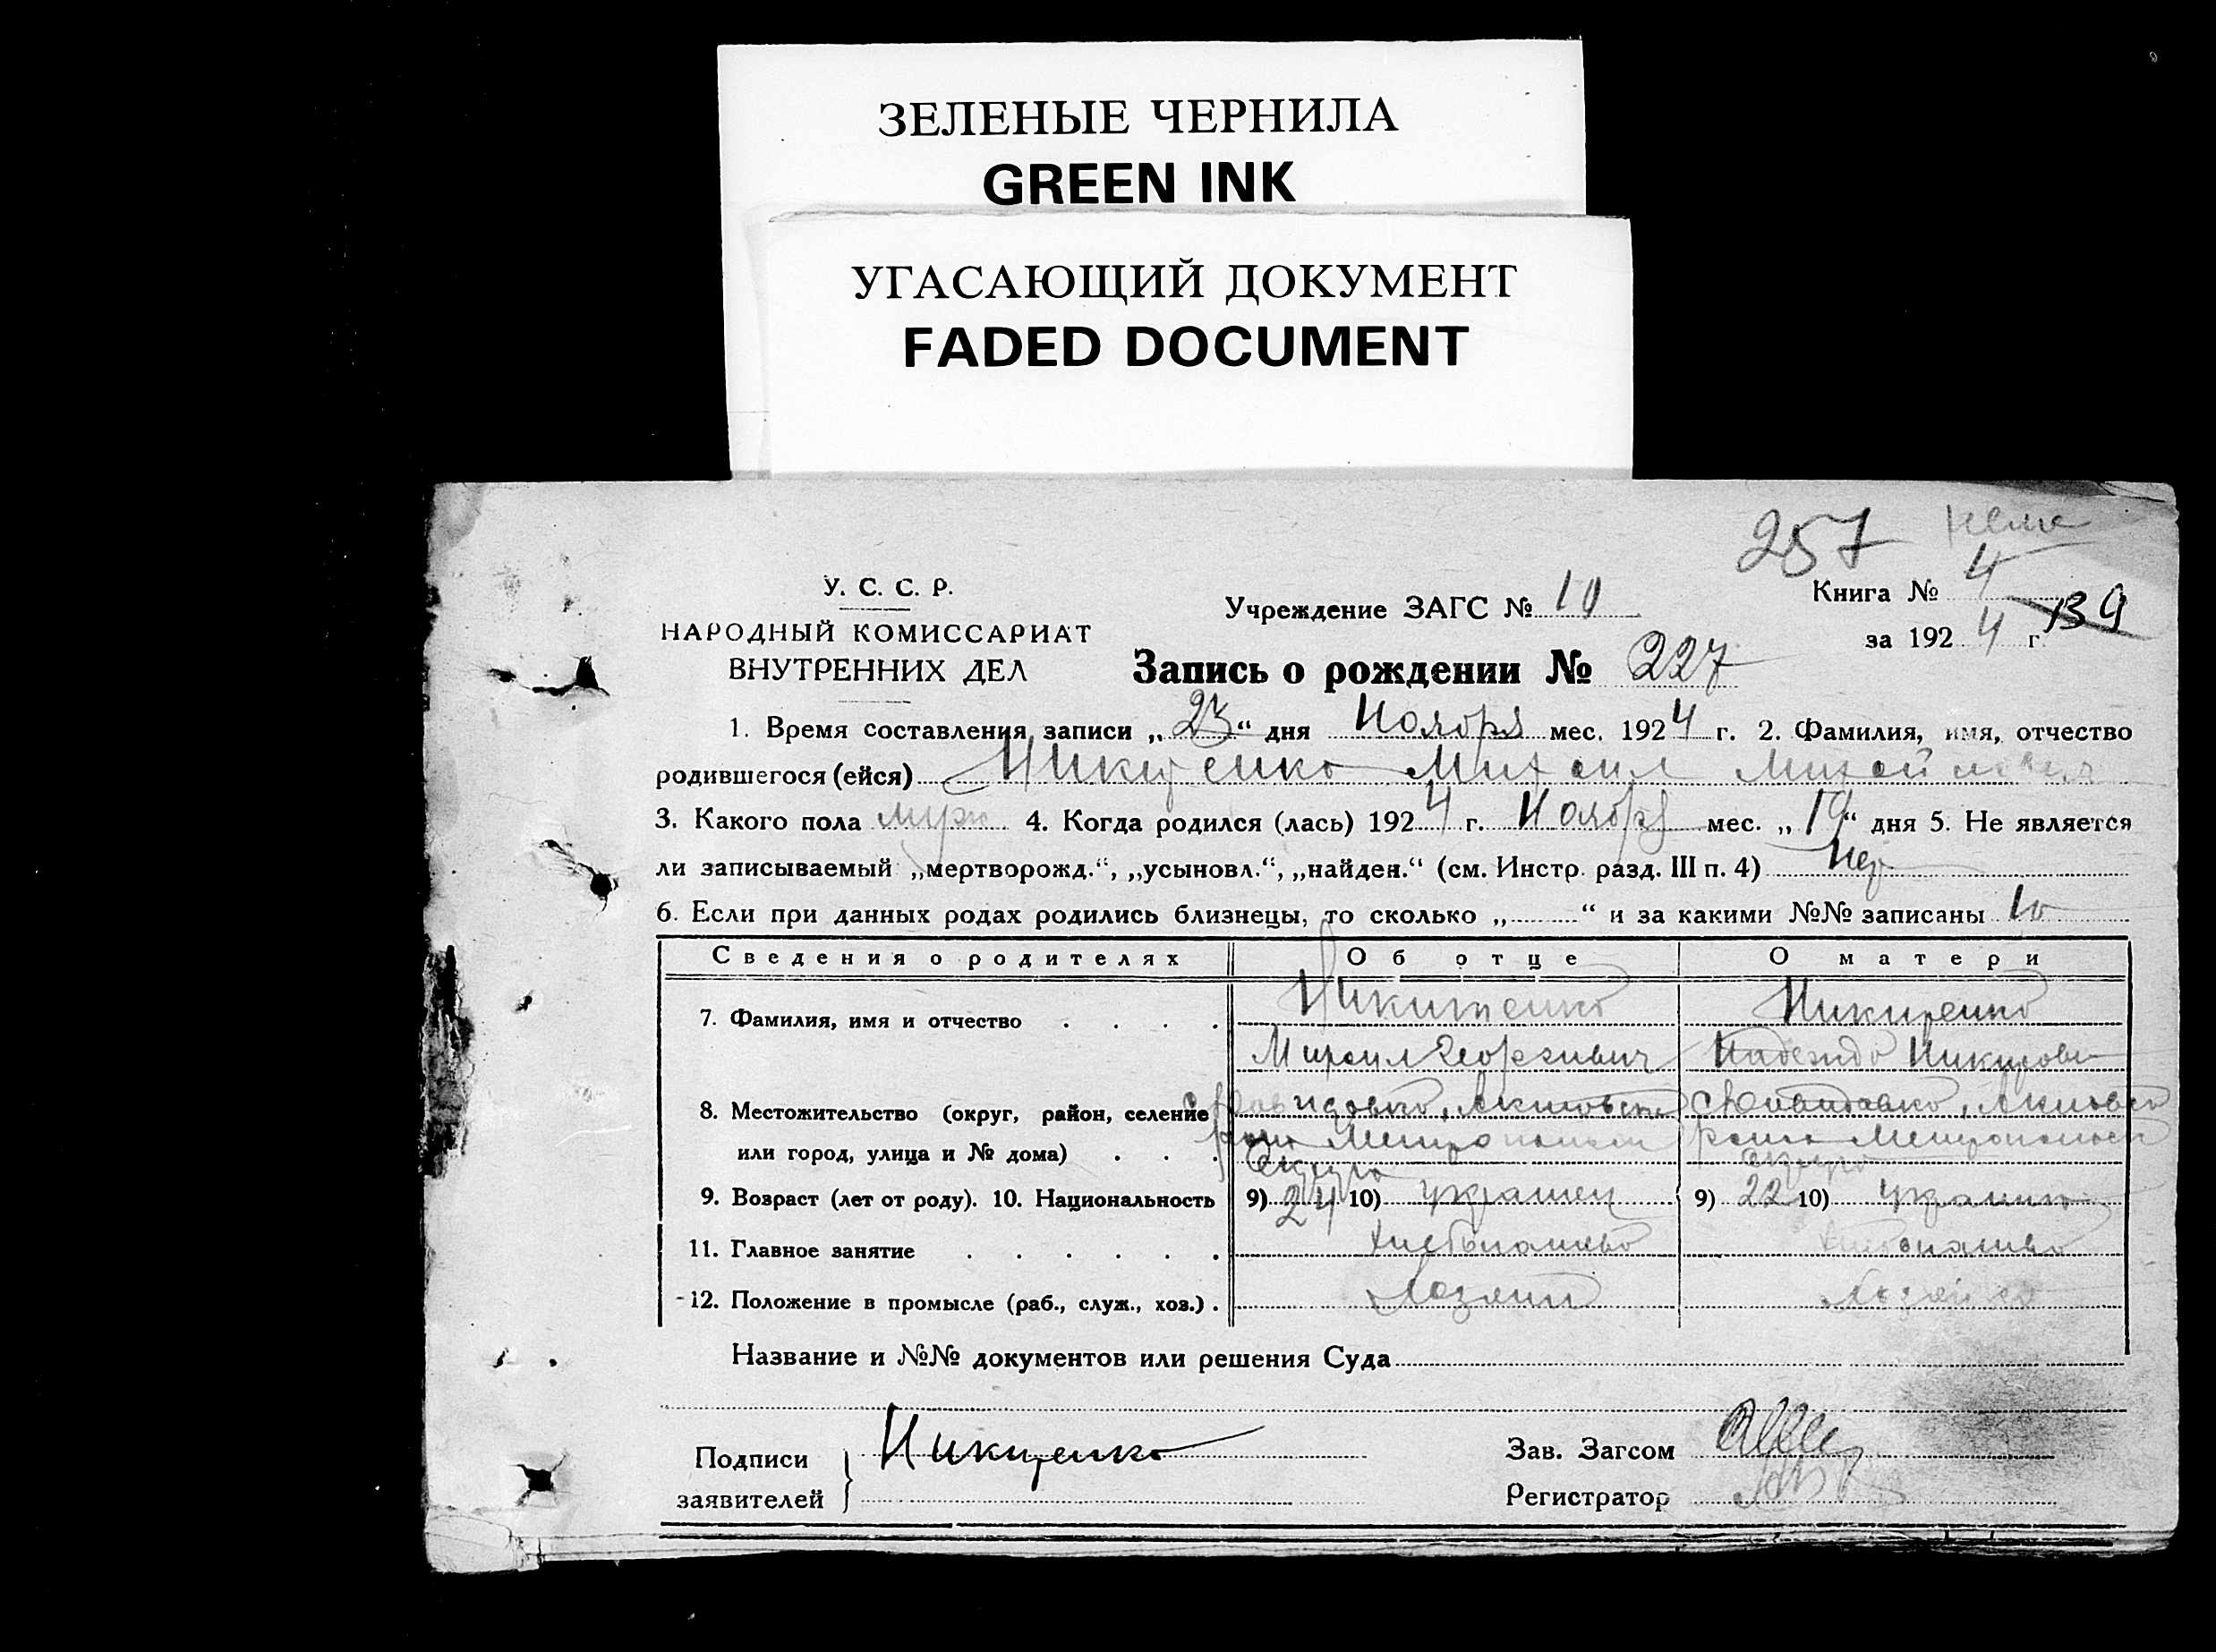 ЗЕЛЕНЫЕ ЧЕРНИЛА
GREEN INK
УГАСАЮЩИЙ ДОКУМЕНТ
FADED DOCUMENT
257
У. С. С. Р.
НАРОДНЫЙ КОМИССАРИАТ
ВНУТРЕННИХ ДЕЛ
Учреждение ЗАГС № 10
Книга № 4
139
за 1924 г.
Запись о рождении № 227
1. Время составления записи „23“ дня Ноября мес. 1924 г. 2. Фамилия, имя, отчество
родившегося (ейся) Никитенко Михаил Михайлович
3. Какого пола муж 4. Когда родился (лась) 1924 г. Ноября мес. „19“ дня 5. Не является
ли записываемый „мертворожд.“, „усыновл.“, „найден.“ (см. Инстр. разд. III п. 4) Нет
6. Если при данных родах родились близнецы, то сколько „ “ и за какими №№ записаны
Сведения о родителях Об отце О матери
7. Фамилия, имя и отчество Никитенко Никитенко
Михаил Георгиевич Надежда
8. Местожительство (округ, район, селение
или город, улица и № дома)
9. Возраст (лет от роду). 10. Национальность 9) 24 10) украинец 9) 22 10)
11. Главное занятие хлебопашево хлебопашево
12. Положение в промысле (раб., служ., хоз.) Хозяин
Название и №№ документов или решения Суда
Подписи
заявителей
Никитенко
Зав. Загсом
Регистратор